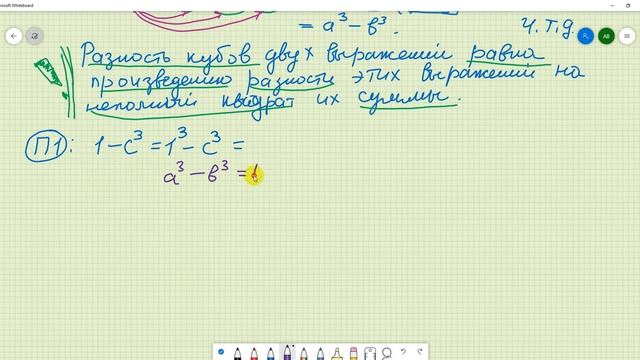 Microsoft Whiteboard
= a³ − в³. ч.т.д.
Разность кубов двух выражений равна
произведению разности этих выражений на
неполный квадрат их суммы.
П1: 1 − c³ = 1³ − c³ =
a³ − в³ =